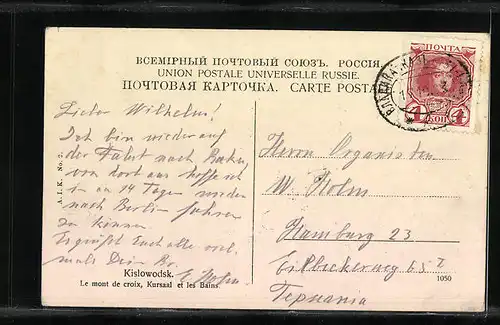 ВСЕМІРНЫЙ ПОЧТОВЫЙ СОЮЗЪ. РОССІЯ.
UNION POSTALE UNIVERSELLE RUSSIE.
ПОЧТОВАЯ КАРТОЧКА. CARTE POSTA
ПОЧТА
4 КОП 4
Lieber Wilhelm!
Ich bin wieder auf
der Fahrt nach Baku,
von dort aus hoffe ich
in 14 Tagen wieder
nach Berlin fahren
zu können.
Es grüßt Euch alle viel-
mals Dein Br.
E. Holm.
A.I.K. No.
Kislowodsk.
Le mont de croix, Kursaal et les Bains.
Herrn Organisten
W. Holm
Hamburg 23
Eilbeckerweg 65 I
Германia
1050